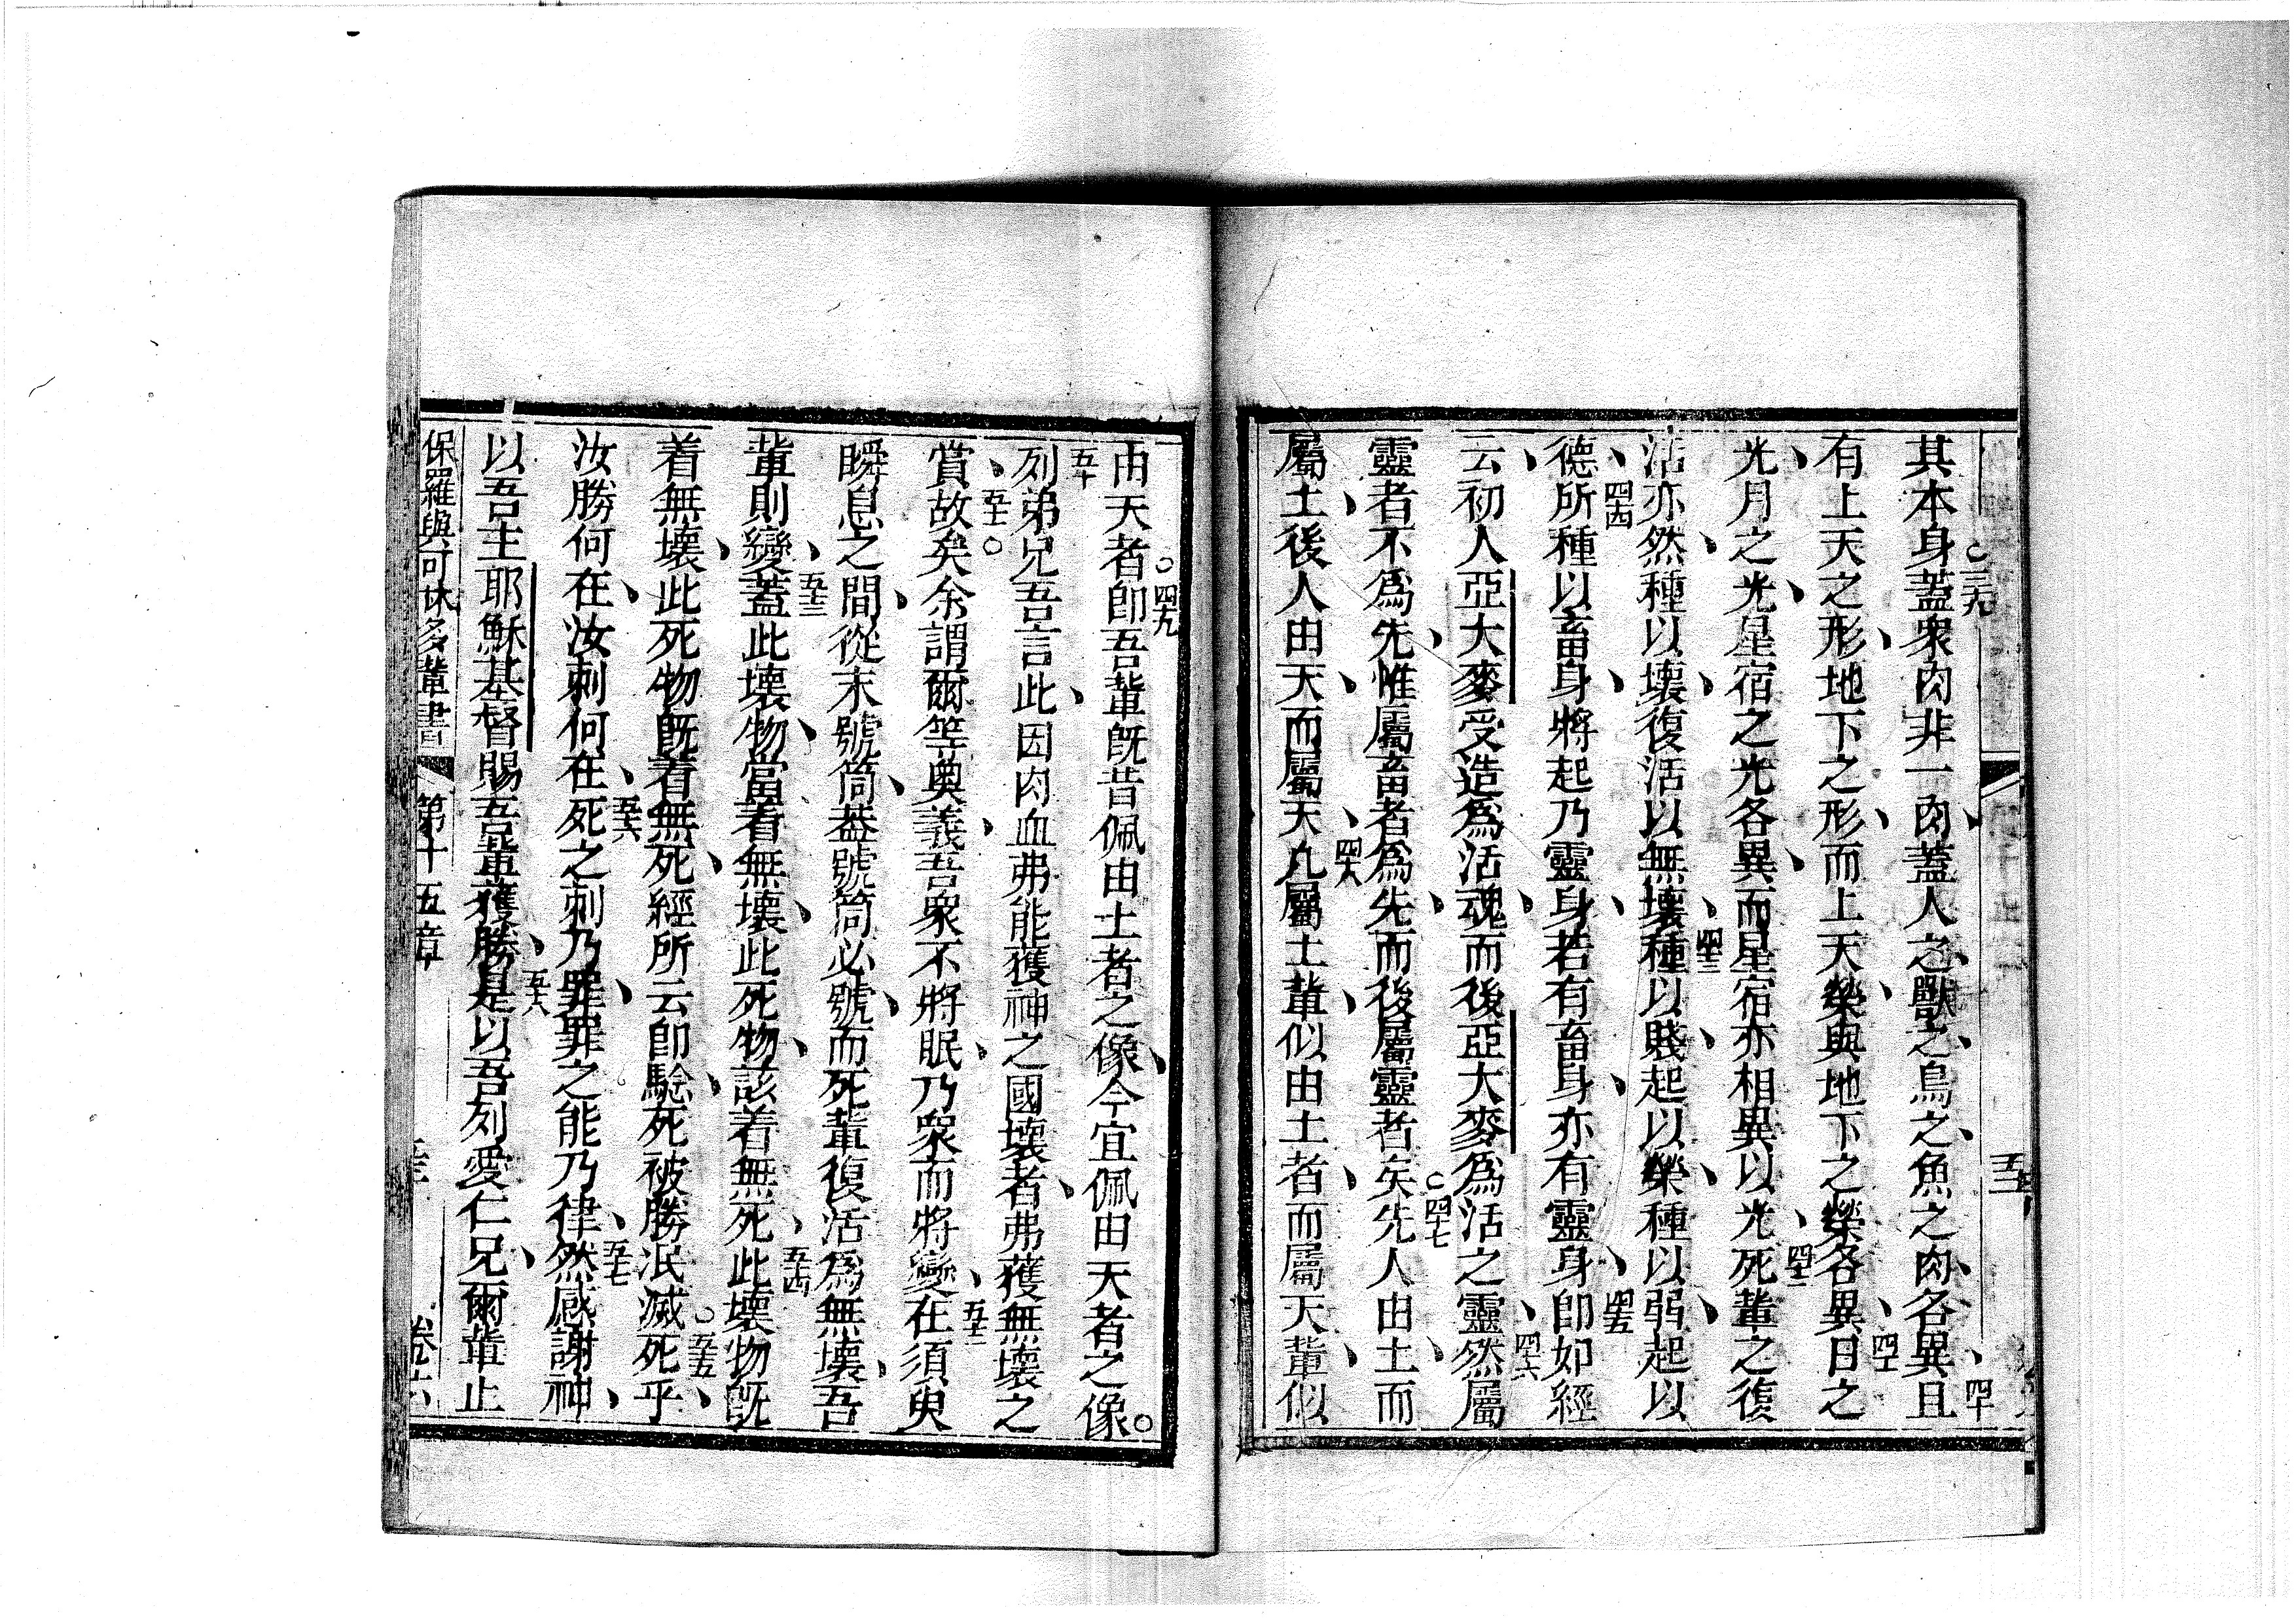 其本身蓋衆肉非一肉蓋人之獸之鳥之魚之肉各異且
有上天之形地下之形而上天榮與地下之榮各異日之
光月之光星宿之光各異而星宿亦相異以光死輩之復
活亦然種以壞復活以無壞種以賤起以榮種以弱起以
德所種以畜身將起乃靈身若有畜身亦有靈身卽如經
云初人亞大麥受造爲活魂而後亞大麥爲活之靈然屬
靈者不爲先惟屬畜者爲先而後屬靈者矣先人由土而
屬土後人由天而屬天凡屬土輩似由土者而屬天輩似
由天者卽吾輩旣昔佩由土者之像今宜佩由天者之像
列弟兄吾言此因肉血弗能獲神之國壞者弗獲無壞之
賞故矣余謂爾等奧義吾衆不將眠乃衆而將變在須臾
瞬息之間從末號筒蓋號筒必號而死輩復活爲無壞吾
輩則變蓋此壞物當着無壞此死物該着無死此壞物旣
着無壞此死物旣着無死經所云卽騐死被勝泯滅死乎
汝勝何在汝刺何在死之刺乃罪罪之能乃律然感謝神
以吾主耶穌基督賜吾輩獲勝是以吾列愛仁兄爾輩止
保羅與可林多輩書 第十五章